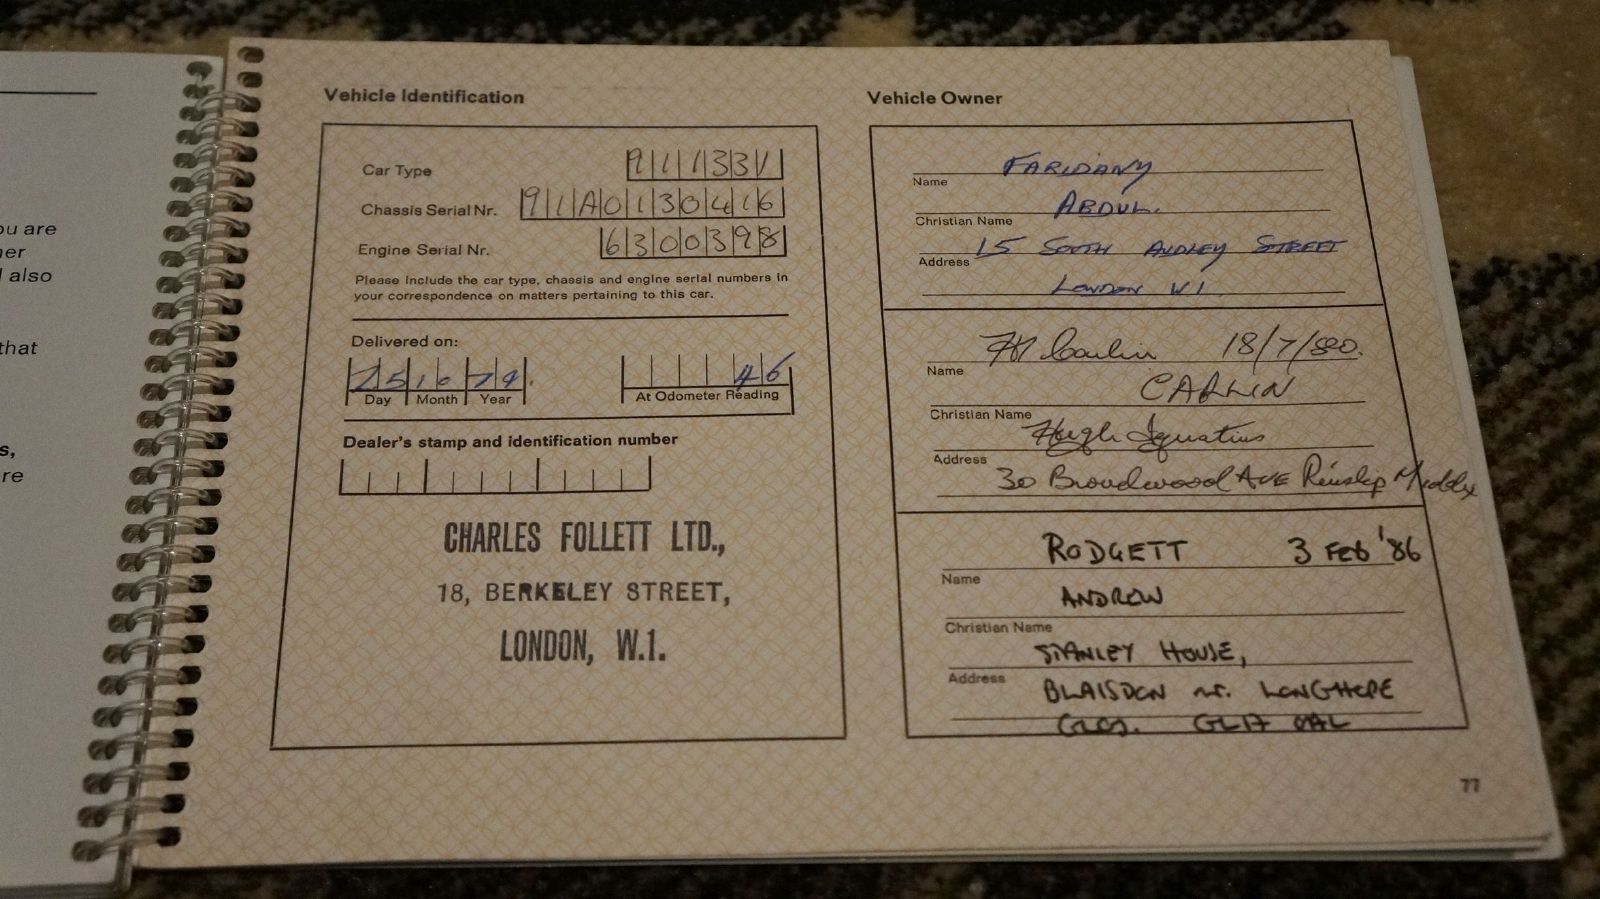 ou are
ner
l also
that
s,
re
Vehicle Identification
Car Type 911331
Chassis Serial Nr. 911A0130416
Engine Serial Nr. 6300398
Please include the car type, chassis and engine serial numbers in
your correspondence on matters pertaining to this car.
Delivered on:
25 10 79. 46
Day Month Year At Odometer Reading
Dealer's stamp and identification number
CHARLES FOLLETT LTD.,
18, BERKELEY STREET,
LONDON, W.1.
Vehicle Owner
FARIDANY
Name
ABDUL.
Christian Name
15 SOUTH AUDLEY STREET
Address
LONDON W1
H Carlin 18/7/80.
Name
CARLIN
Christian Name
Hugh Ignatius
Address
30 Broadwood AVE Ruislip Middx
RODGETT 3 FEB '86
Name
ANDREW
Christian Name
STANLEY HOUSE,
Address
BLAISDON nr. LONGHOPE
GLOS. GL17 0AL
77